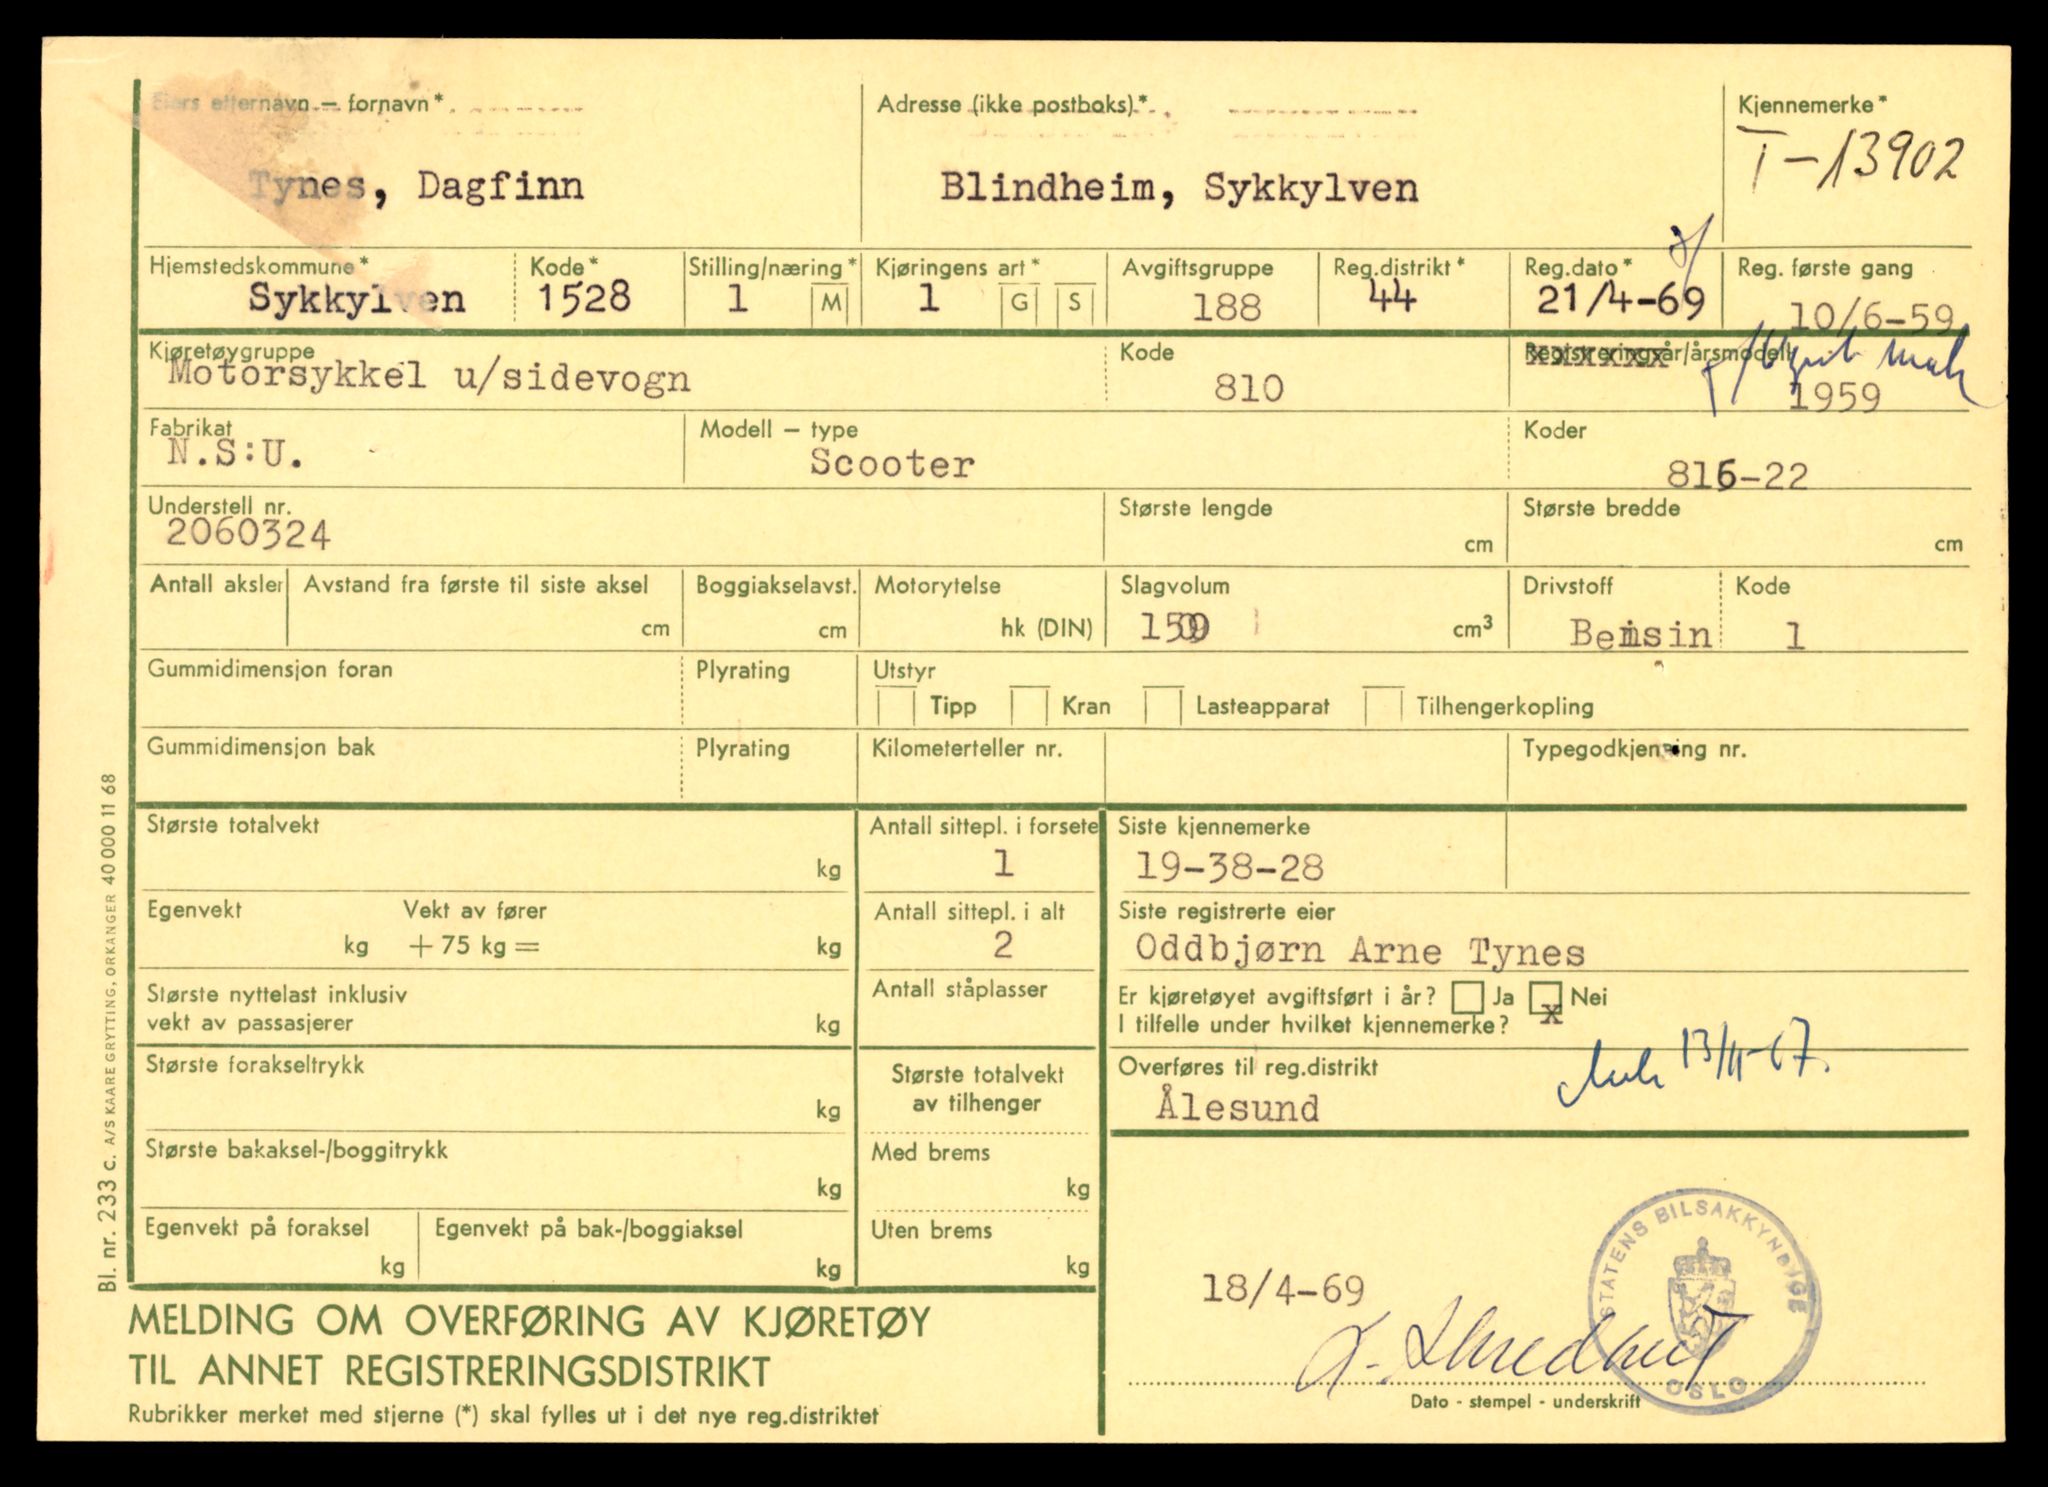 Eiers etternavn — fornavn*
Adresse (ikke postboks)*
Kjennemerke*
T-13902
Tynes, Dagfinn
Blindheim, Sykkylven
Hjemstedskommune*
Kode*
Stilling/næring*
Kjøringens art*
Avgiftsgruppe
Reg.distrikt*
Reg.dato*
Reg. første gang
Sykkylven
1528
1
M
1
G
S
188
44
21/4-69
10/6-59
Kjøretøygruppe
Kode
Registreringsår/årsmodell
Motorsykkel u/sidevogn
810
1959
Fabrikat
Modell — type
Koder
N.S:U.
Scooter
816-22
Understell nr.
Største lengde
Største bredde
2060324
cm
cm
Antall aksler
Avstand fra første til siste aksel
Boggiakselavst.
Motorytelse
Slagvolum
Drivstoff
Kode
cm
cm
hk (DIN)
cm³
Bensin
1
Gummidimensjon foran
Plyrating
Utstyr
Tipp
Kran
Lasteapparat
Tilhengerkopling
Gummidimensjon bak
Plyrating
Kilometerteller nr.
Typegodkjenning nr.
Største totalvekt
kg
Antall sittepl. i forsete
1
Siste kjennemerke
19-38-28
Egenvekt
Vekt av fører
kg
+ 75 kg =
kg
Antall sittepl. i alt
2
Siste registrerte eier
Oddbjørn Arne Tynes
Største nyttelast inklusiv
vekt av passasjerer
kg
Antall ståplasser
Er kjøretøyet avgiftsført i år?
Ja
x
Nei
I tilfelle under hvilket kjennemerke?
Største forakseltrykk
kg
Største totalvekt
av tilhenger
Overføres til reg.distrikt
Ålesund
Største bakaksel-/boggitrykk
kg
Med brems
kg
Egenvekt på foraksel
kg
Egenvekt på bak-/boggiaksel
kg
Uten brems
kg
18/4-69
STATENS BILSAKKYNDIGE
OSLO
Dato - stempel - underskrift
MELDING OM OVERFØRING AV KJØRETØY
TIL ANNET REGISTRERINGSDISTRIKT
Rubrikker merket med stjerne (*) skal fylles ut i det nye reg.distriktet
Bl. nr. 233 c. A/S KAARE GRYTTING, ORKANGER 40 000 11 68